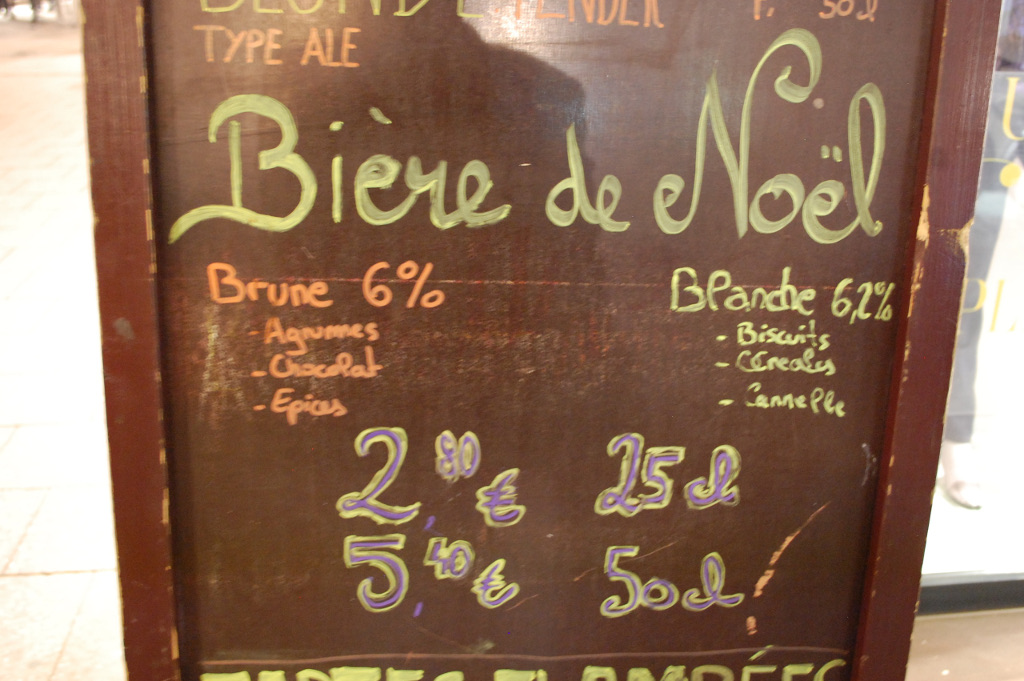 BLONDE TENDER P. 50cl
TYPE ALE
Bière de Noël
Brune 6%
- Agrumes
- Chocolat
- Epices
Blanche 6,2%
- Biscuits
- Céréales
- Cannelle
2,80 € 25cl
5,40 € 50cl
TARTES FLAMBÉES